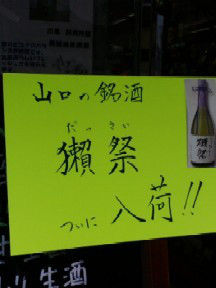 山口の銘酒
だっさい
獺祭
ついに入荷!!
獺祭
生酒